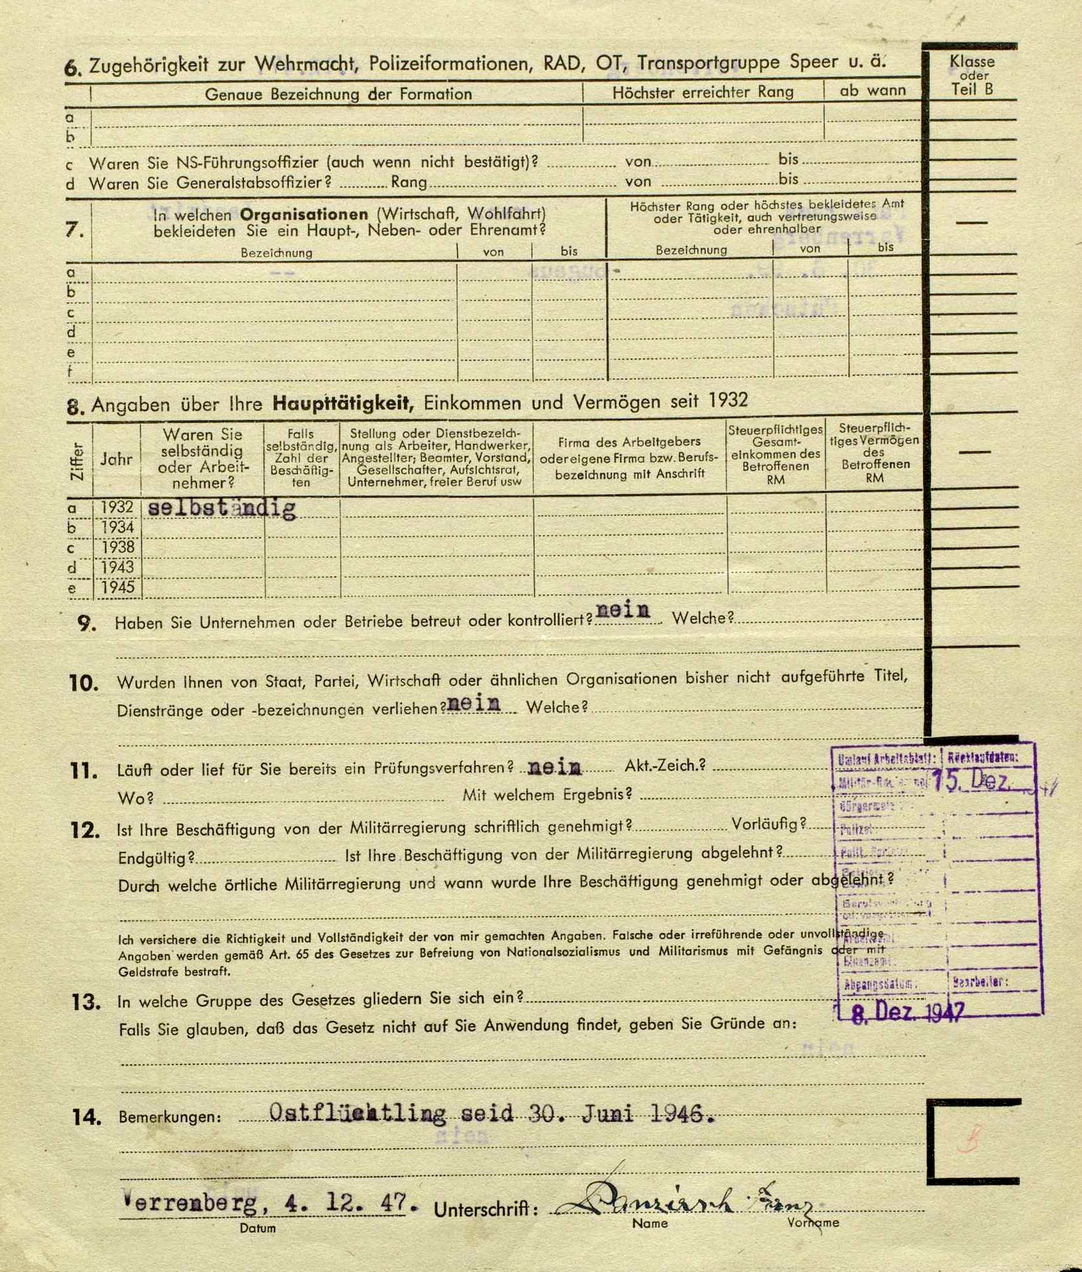 6. Zugehörigkeit zur Wehrmacht, Polizeiformationen, RAD, OT, Transportgruppe Speer u. ä.
Klasse oder Teil B
Genaue Bezeichnung der Formation Höchster erreichter Rang ab wann
a
b
c Waren Sie NS-Führungsoffizier (auch wenn nicht bestätigt)? von bis
d Waren Sie Generalstabsoffizier? Rang von bis
7. In welchen Organisationen (Wirtschaft, Wohlfahrt)
bekleideten Sie ein Haupt-, Neben- oder Ehrenamt?
Höchster Rang oder höchstes bekleidetes Amt
oder Tätigkeit, auch vertretungsweise
oder ehrenhalber
Bezeichnung von bis Bezeichnung von bis
a
b
c
d
e
f
8. Angaben über Ihre Haupttätigkeit, Einkommen und Vermögen seit 1932
Ziffer
Jahr
Waren Sie
selbständig
oder Arbeit-
nehmer?
Falls
selbständig,
Zahl der
Beschäftig-
ten
Stellung oder Dienstbezeich-
nung als Arbeiter, Handwerker,
Angestellter, Beamter, Vorstand,
Gesellschafter, Aufsichtsrat,
Unternehmer, freier Beruf usw
Firma des Arbeitgebers
oder eigene Firma bzw. Berufs-
bezeichnung mit Anschrift
Steuerpflichtiges
Gesamt-
einkommen des
Betroffenen
RM
Steuerpflich-
tiges Vermögen
des
Betroffenen
RM
a 1932 selbständig
b 1934
c 1938
d 1943
e 1945
9. Haben Sie Unternehmen oder Betriebe betreut oder kontrolliert? nein Welche?
10. Wurden Ihnen von Staat, Partei, Wirtschaft oder ähnlichen Organisationen bisher nicht aufgeführte Titel,
Dienstränge oder -bezeichnungen verliehen? nein Welche?
11. Läuft oder lief für Sie bereits ein Prüfungsverfahren? nein Akt.-Zeich.?
Wo? Mit welchem Ergebnis?
Umlauf Arbeitsblatt: Rücklaufdaten:
15. Dez.
Polizei
12. Ist Ihre Beschäftigung von der Militärregierung schriftlich genehmigt? Vorläufig?
Endgültig? Ist Ihre Beschäftigung von der Militärregierung abgelehnt?
Durch welche örtliche Militärregierung und wann wurde Ihre Beschäftigung genehmigt oder abgelehnt?
Ich versichere die Richtigkeit und Vollständigkeit der von mir gemachten Angaben. Falsche oder irreführende oder unvollständige
Angaben werden gemäß Art. 65 des Gesetzes zur Befreiung von Nationalsozialismus und Militarismus mit Gefängnis oder mit
Geldstrafe bestraft.
Abgangsdatum: Bearbeiter:
8. Dez. 1947
13. In welche Gruppe des Gesetzes gliedern Sie sich ein?
Falls Sie glauben, daß das Gesetz nicht auf Sie Anwendung findet, geben Sie Gründe an:
14. Bemerkungen: Ostflüchtling seid 30. Juni 1946.
B
Verrenberg, 4. 12. 47. Unterschrift: Franz
Datum Name Vorname